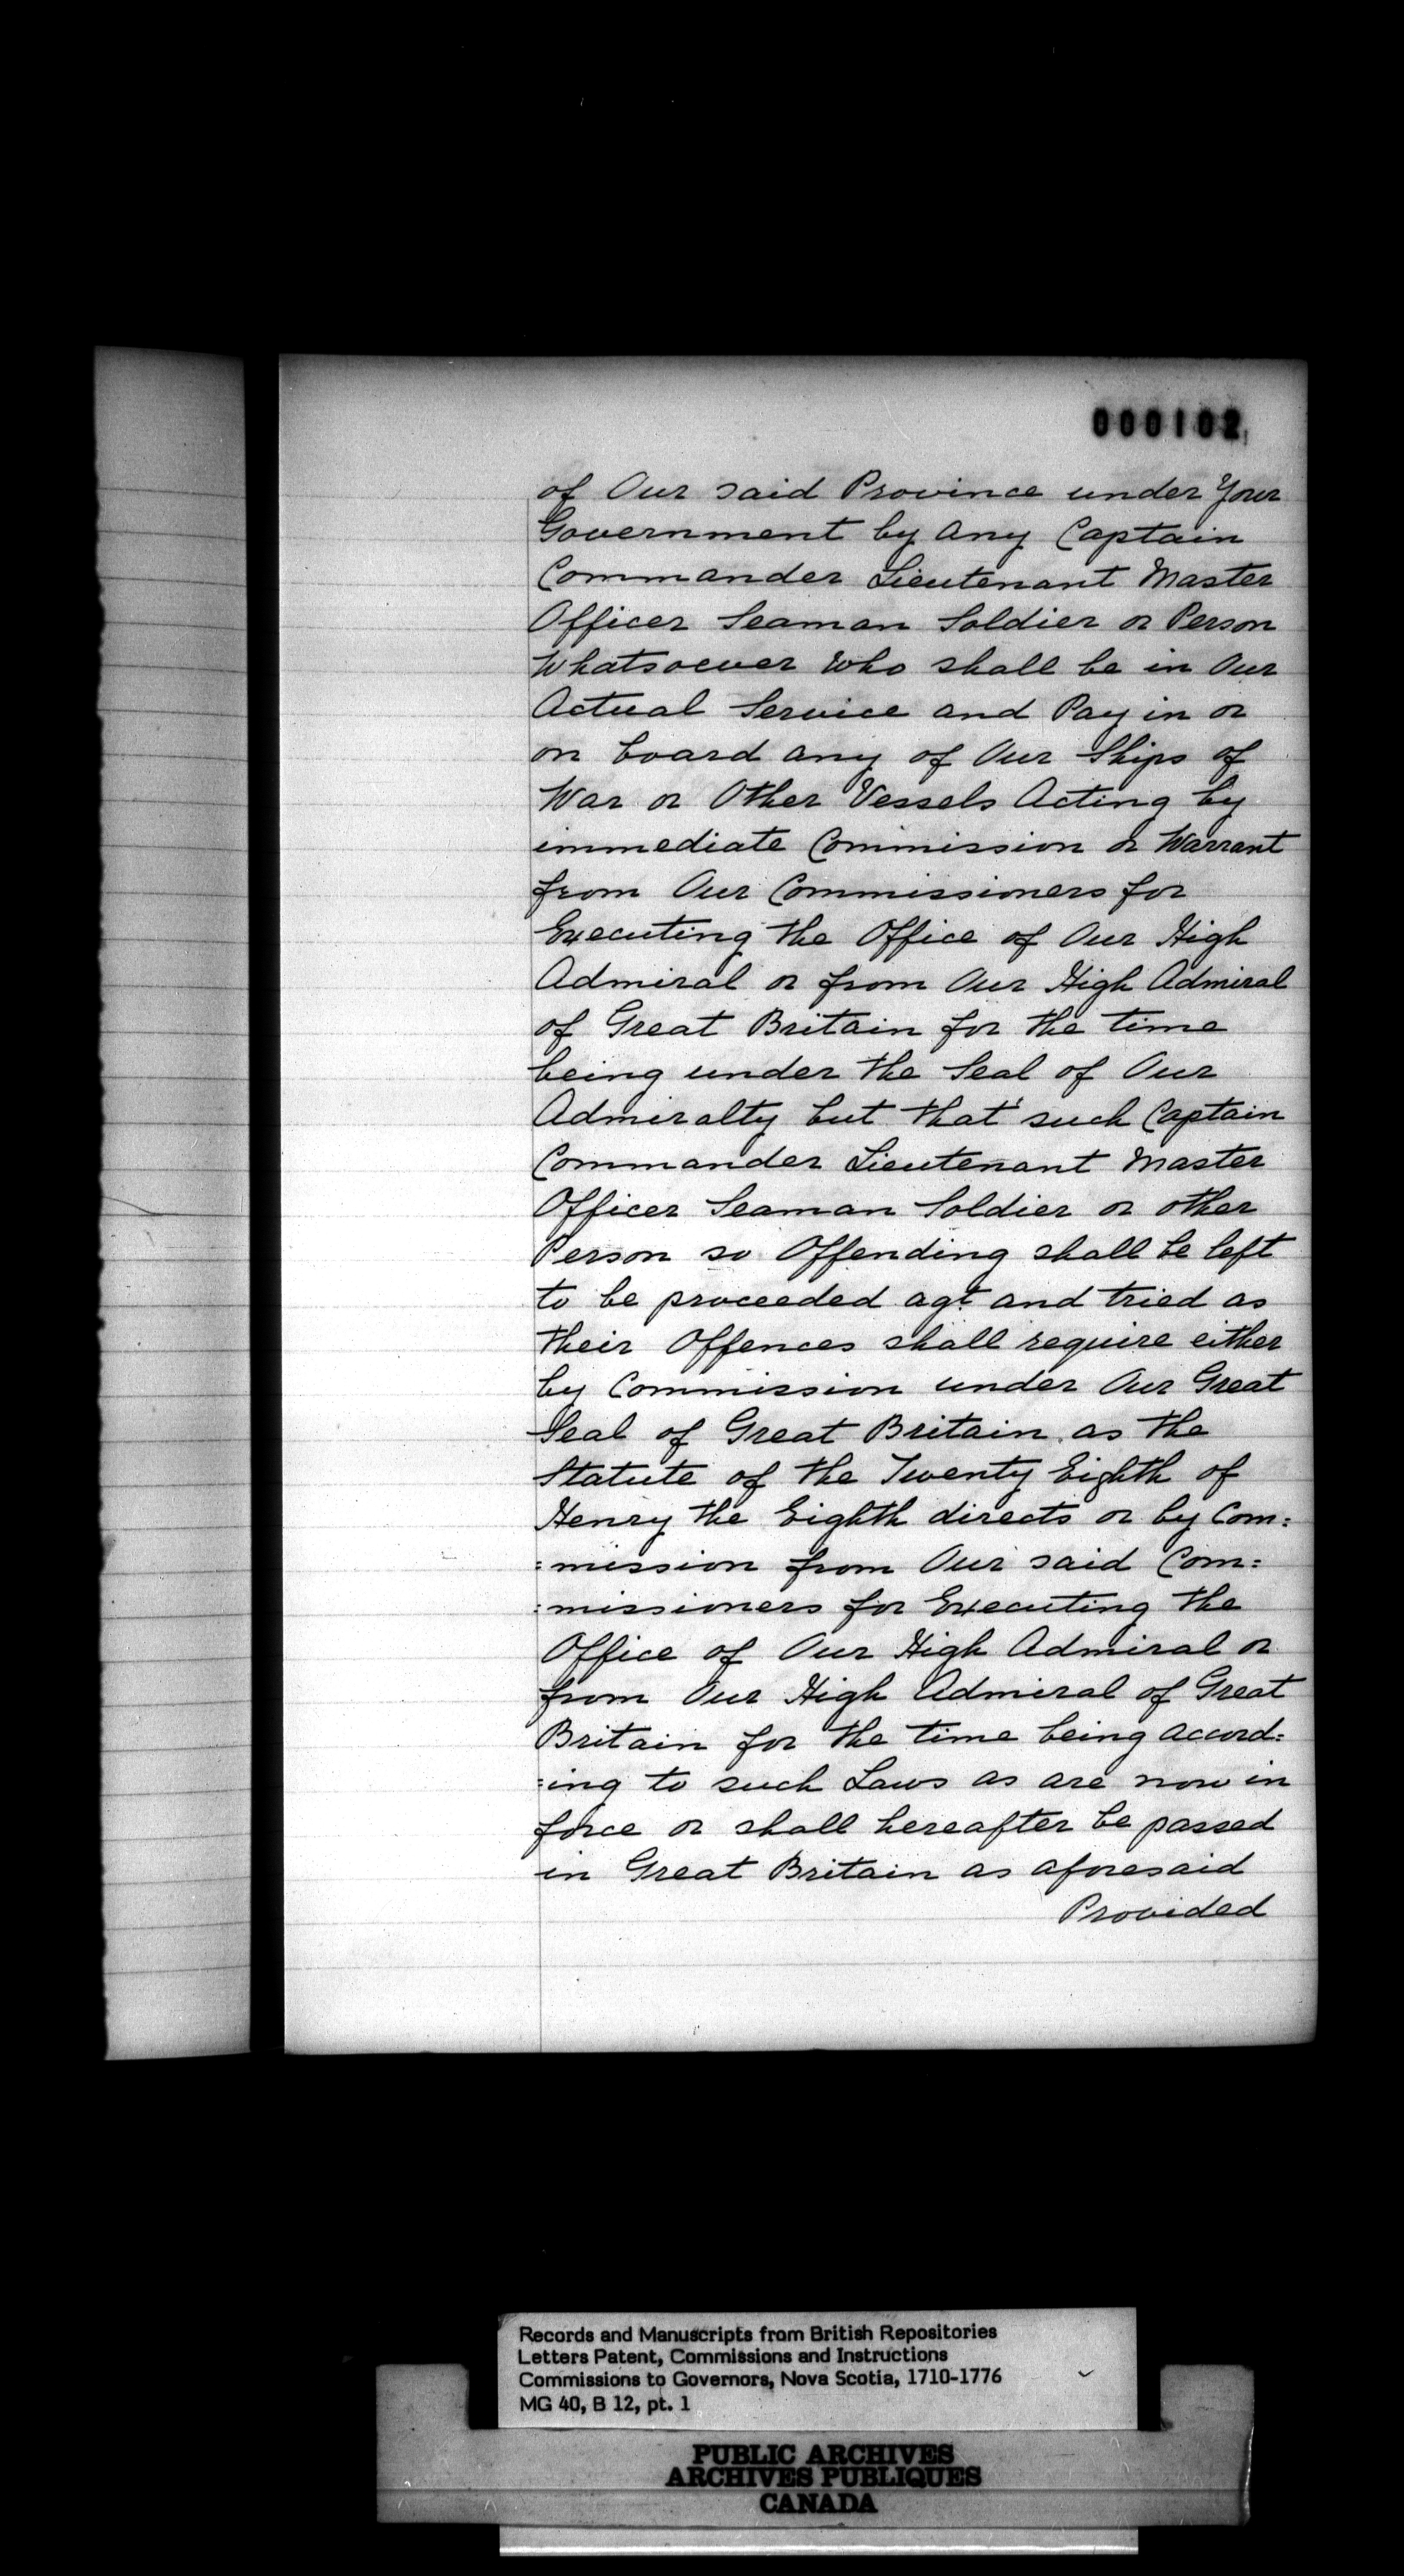 000102
of Our said Province under Your
Government by Any Captain
Commander Lieutenant Master
Officer Seaman Soldier or Person
Whatsoever who shall be in Our
Actual Service and Pay in or
on board any of Our Ships of
War or Other Vessels Acting by
immediate Commission or Warrant
from Our Commissioners for
Executing the Office of Our High
Admiral or from Our High Admiral
of Great Britain for the time
being under the Seal of Our
Admiralty but that such Captain
Commander Lieutenant Master
Officer Seaman Soldier or other
Person so Offending shall be left
to be proceeded agt and tried as
their Offences shall require either
by Commission under Our Great
Seal of Great Britain as the
Statute of the Twenty Eighth of
Henry the Eighth directs or by Com:
:mission from Our said Com:
:missioners for Executing the
Office of Our High Admiral or
from Our High Admiral of Great
Britain for the time being accord:
:ing to such Laws as are now in
force or shall hereafter be passed
in Great Britain as aforesaid
Provided
Records and Manuscripts from British Repositories
Letters Patent, Commissions and Instructions
Commissions to Governors, Nova Scotia, 1710-1776
MG 40, B 12, pt. 1
PUBLIC ARCHIVES
ARCHIVES PUBLIQUES
CANADA